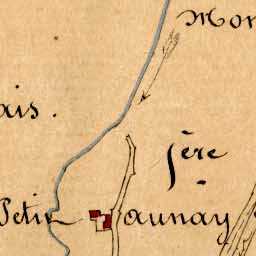 Mon
ais.
fère
Petit aunay